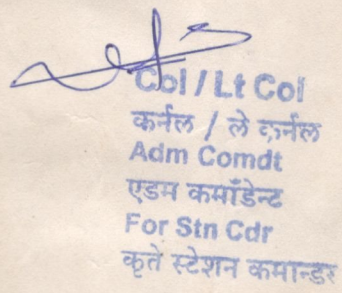 Col / Lt Col
कर्नल / ले कर्नल
Adm Comdt
एडम कमाँडेन्ट
For Stn Cdr
कृते स्टेशन कमान्डर